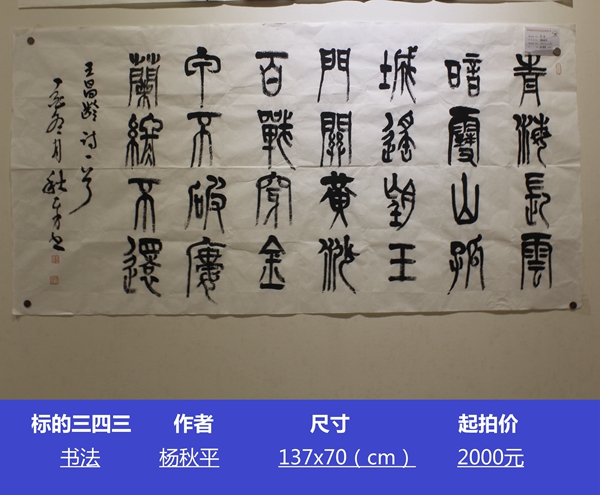 青海長雲
暗雪山孤
城遙望玉
門關黃沙
百戰穿金
甲不破樓
蘭終不還
王昌齡诗一首
月秋平书
标的三四三 作者 尺寸 起拍价
书法 杨秋平 137x70（cm） 2000元